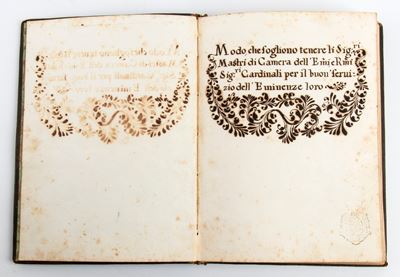 Modo che sogliono tenere li Sig.ri
Mastri di Camera dell' Emi e Rmi
Sig.ri Cardinali per il buon serui-
zio dell' Eminenze loro